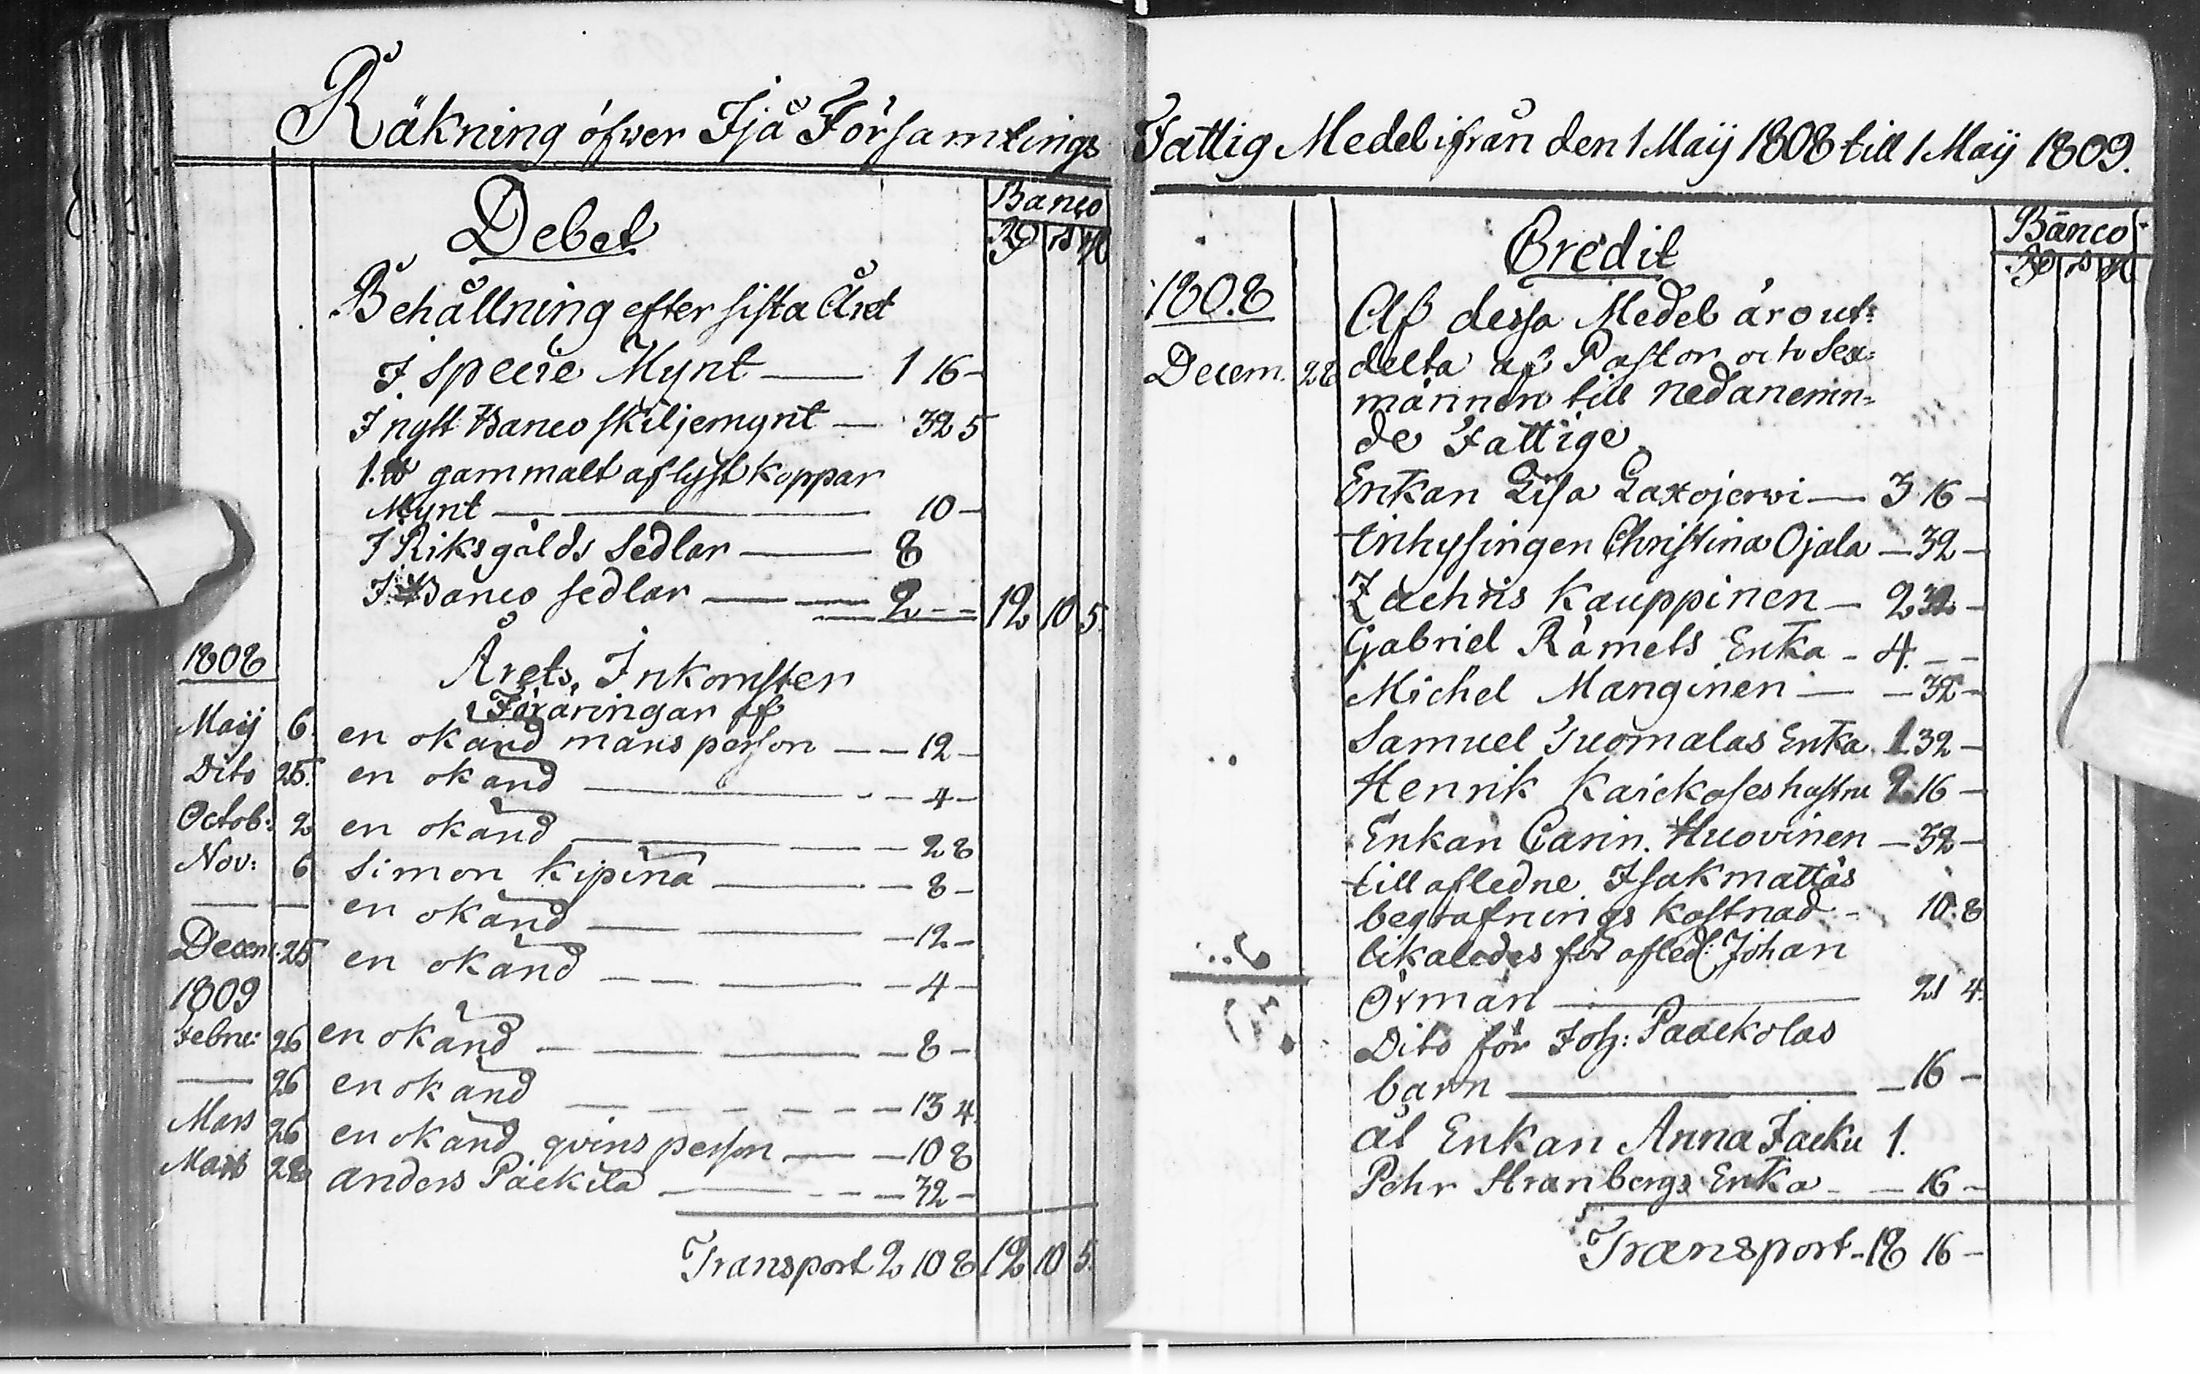 Räkning öfwer Ijå Församlings
Debet
Banco
Rd s rst
Behållning efter sista Året
I specie Mynt — 1 16 -
I nytt Banco skiljemynt — 32 5
1. lb gammalt aflyst koppar
Mynt — 10 -
I Riksgälds Sedlar — 8
I Banco sedlar — 2 - - 12 10 5.
1808
Årets Inkomster
Föräringar af
Maij 6. en okänd mans person — 12 -
Dito 25. en okänd — 4 -
Octob: 2 en okänd — 28
Nov: 6 Simon Kipinä — 8 -
— — en okänd — 12 -
Decem: 25 en okänd — 4 -
1809
Febru: 26 en okänd — 8 -
— 26 en okänd — 13 4.
Mars 26 en okänd qvins person — 10 8
Mars 28 anders Päckilä — 32 -
Transport 2 10 8 12 10 5.
Fattig Medel ifrån den 1 Maij 1808 till 1 Maij 1809.
Credit
Banco
Rd s rst
1808
Af dessa Medel äro ut=
Decem. 28 delta af Pastor och Sex=
männen till nedanemn=
de Fattige
Enkan Lisa Laxojerwi — 3 16 -
inhysingen Christina Ojala — 32 -
Zachris Kauppinen — 2 32 -
Gabriel Rämets Enka - 4. - -
Michel Manginen — 32 -
Samuel Tuomalas Enka 1 32 -
Henrik Kaickoses hustru 2 16 -
Enkan Carin. Huovinen — 32 -
till afledne Isak mattas
begrafnings kostnad - 10. 8
likaledes för afled: Johan
Örman — 21 4.
Dito för Joh: Paackolas
barn — 16 -
åt Enkan Anna Jacku 1.
Pehr Stranbergs Enka - 16 -
Transport - 18 16 -